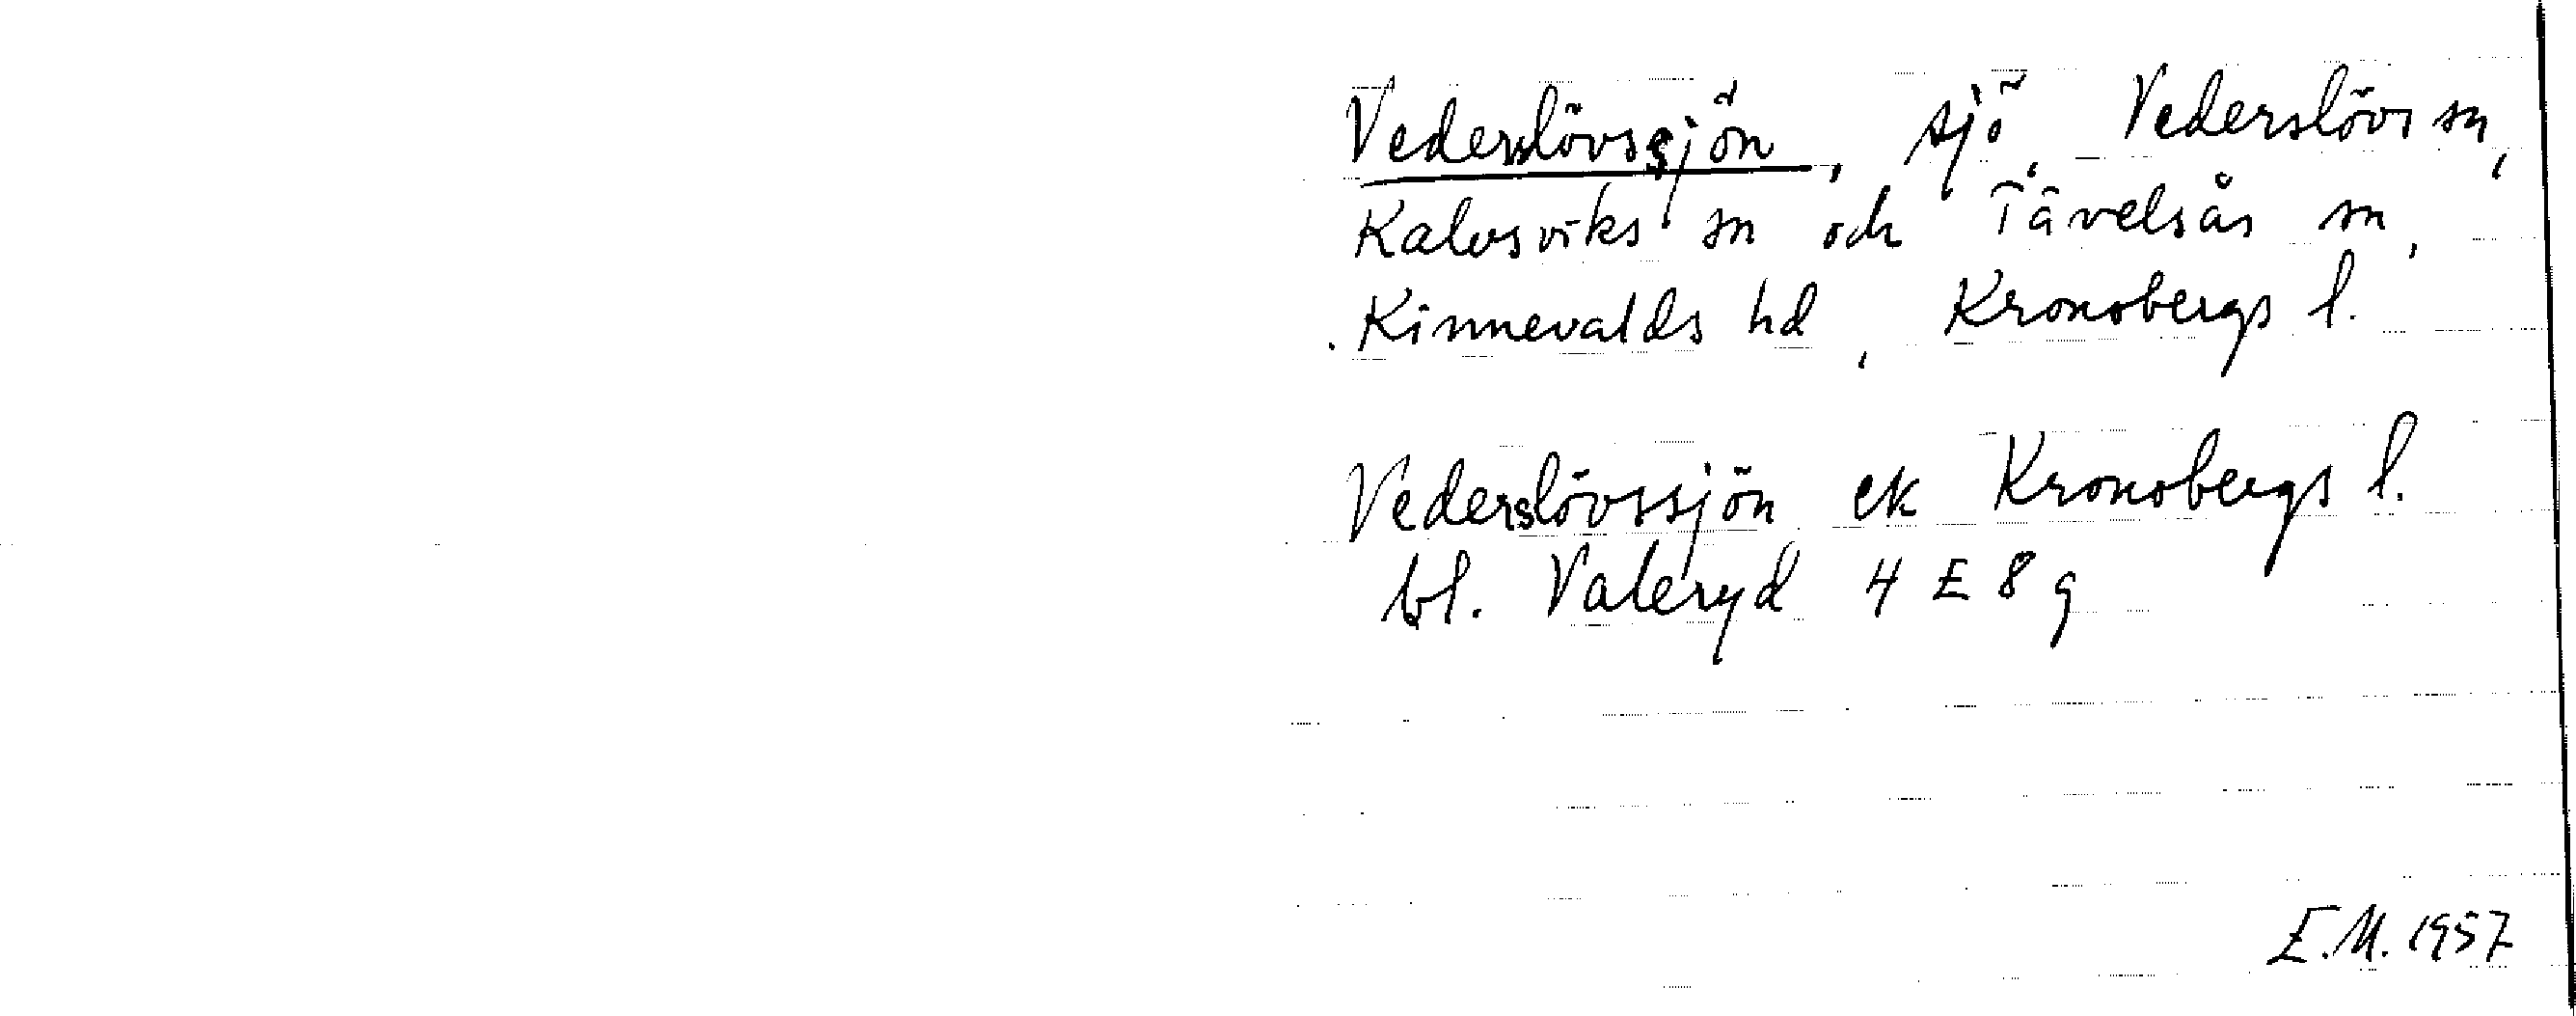 Vederslövssjön, sjö, Vederslövs sn,
Kalvsviks sn och Tävelsås sn,
Kinnevalds hd, Kronobergs l.
Vederslövssjön ek Kronobergs l.
bl. Valeryd 4 E 8 g
E.M. 1957